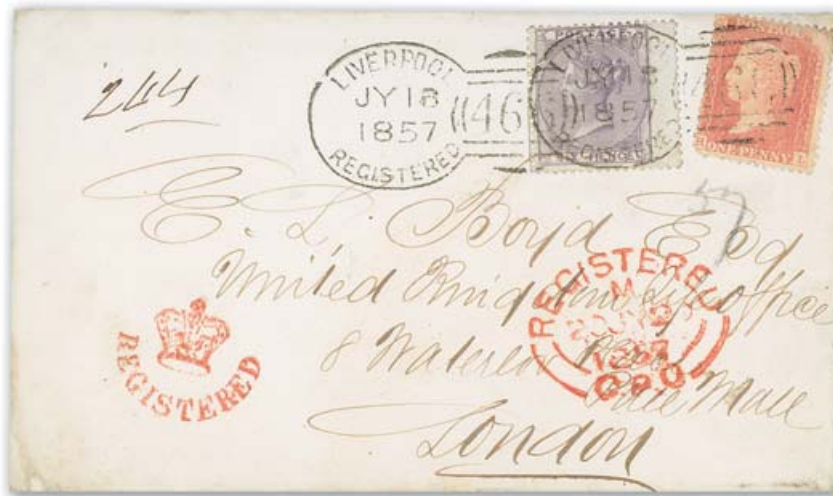 244
LIVERPOOL
JY 18
1857
REGISTERED
466
POSTAGE
LIVERPOOL
JY 18
1857
REGISTERED
ONE PENNY
E. L. Boyd Esq
United Kingdom Life Office
8 Waterloo Place
Pall Mall
London
REGISTERED
REGISTERED
M
1857
G.P.O